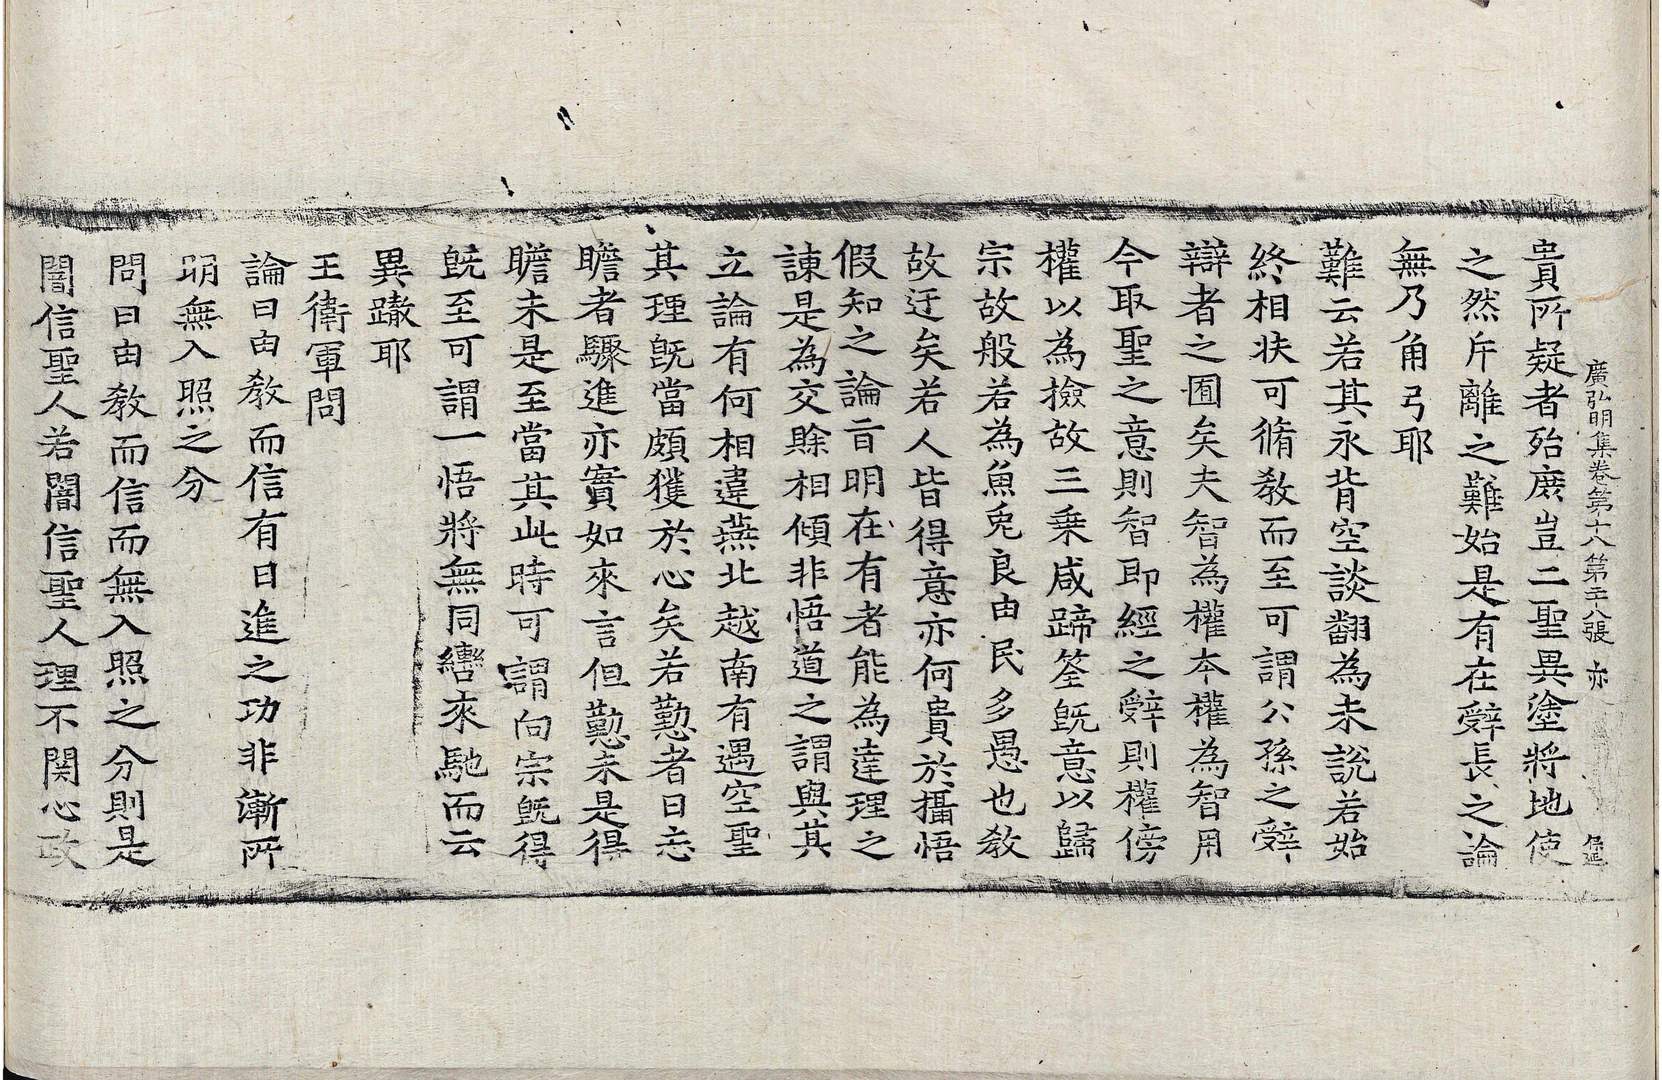 廣弘明集卷第十八 第三十八張 亦
貴所疑者殆庶豈二聖異塗將地使
之然斥離之難始是有在辝長之論
無乃角弓耶
難云若其永背空談翻為未說若始
終相扶可脩教而至可謂公孫之辝
辯者之囿矣夫智為權本權為智用
今取聖之意則智即經之辝則權傍
權以為撿故三乗咸蹄筌既意以歸
宗故般若為魚兎良由民多愚也教
故迂矣若人皆得意亦何貴於攝悟
假知之論旨明在有者能為達理之
諫是為交賖相傾非悟道之謂與其
立論有何相違燕北越南有遇空聖
其理既當頗獲於心矣若勤者日忘
瞻者驟進亦實如來言但勤未是得
瞻未是至當其此時可謂向宗既得
既至可謂一悟將無同轡來馳而云
異轍耶
王衛軍問
論曰由教而信有日進之功非漸所
明無入照之分
問曰由教而信而無入照之分則是
闇信聖人若闇信聖人理不関心政